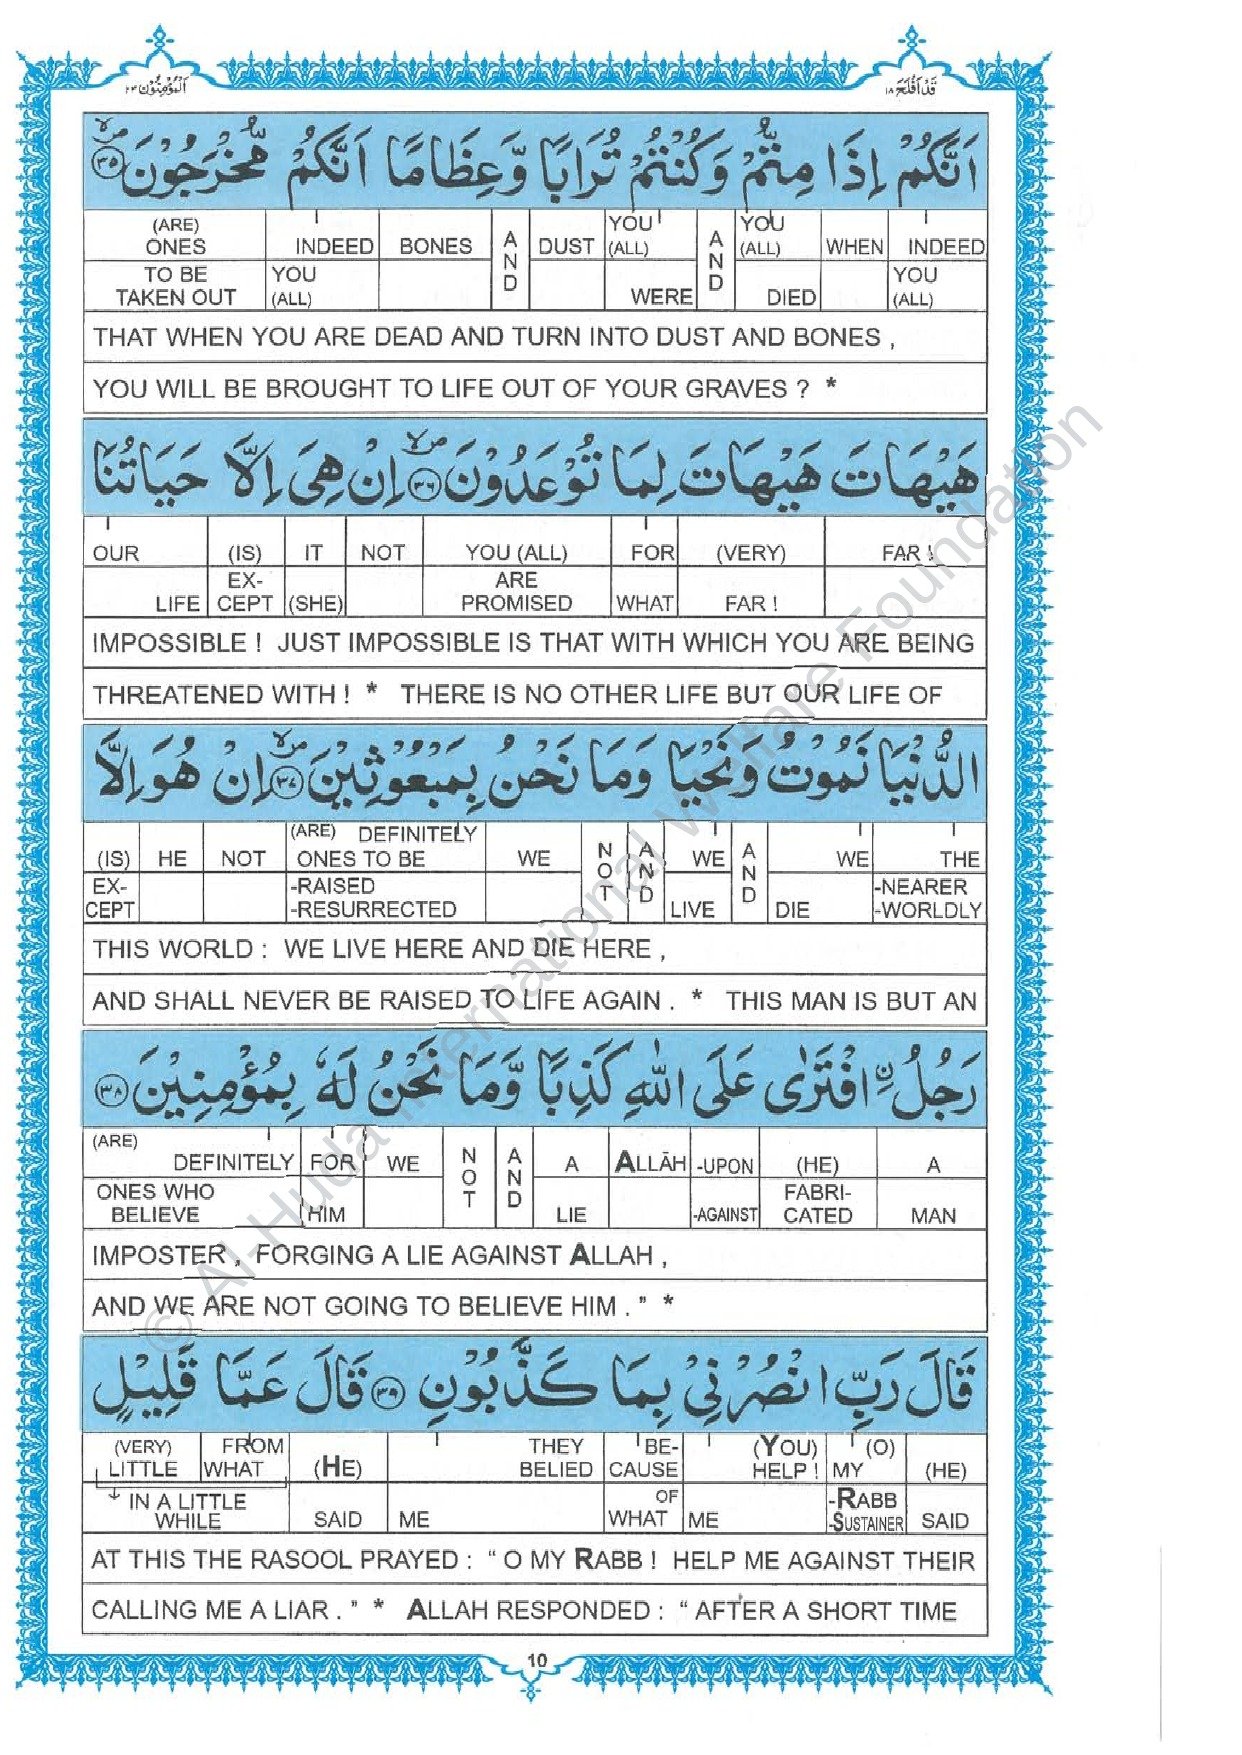 المؤمنون ٢٣
قد افلح ١٨
اَنَّكُمْ اِذَا مِتُّمْ وَكُنْتُمْ تُرَابًا وَّعِظَامًا اَنَّكُمْ مُّخْرَجُوْنَ ﴿٣٥﴾
(ARE) ONES INDEED BONES AND DUST YOU (ALL) AND YOU (ALL) WHEN INDEED
TO BE TAKEN OUT YOU (ALL) WERE DIED YOU (ALL)
THAT WHEN YOU ARE DEAD AND TURN INTO DUST AND BONES ,
YOU WILL BE BROUGHT TO LIFE OUT OF YOUR GRAVES ? *
هَيْهَاتَ هَيْهَاتَ لِمَا تُوْعَدُوْنَ ﴿٣٦﴾ اِنْ هِىَ اِلَّا حَيَاتُنَا
OUR (IS) IT NOT YOU (ALL) FOR (VERY) FAR !
LIFE EX-CEPT (SHE) ARE PROMISED WHAT FAR !
IMPOSSIBLE ! JUST IMPOSSIBLE IS THAT WITH WHICH YOU ARE BEING
THREATENED WITH ! * THERE IS NO OTHER LIFE BUT OUR LIFE OF
الدُّنْيَا نَمُوْتُ وَنَحْيَا وَمَا نَحْنُ بِمَبْعُوْثِيْنَ ﴿٣٧﴾ اِنْ هُوَ اِلَّا
(IS) HE NOT (ARE) DEFINITELY ONES TO BE WE NOT AND WE AND WE THE
EX-CEPT -RAISED -RESURRECTED LIVE DIE -NEARER -WORLDLY
THIS WORLD : WE LIVE HERE AND DIE HERE ,
AND SHALL NEVER BE RAISED TO LIFE AGAIN . * THIS MAN IS BUT AN
رَجُلُ ۨ افْتَرٰى عَلَى اللّٰهِ كَذِبًا وَّمَا نَحْنُ لَهٗ بِمُؤْمِنِيْنَ ﴿٣٨﴾
(ARE) DEFINITELY FOR WE NOT AND A ALLĀH -UPON (HE) A
ONES WHO BELIEVE HIM LIE -AGAINST FABRI-CATED MAN
IMPOSTER , FORGING A LIE AGAINST ALLAH ,
AND WE ARE NOT GOING TO BELIEVE HIM . ” *
قَالَ رَبِّ انْصُرْنِىْ بِمَا كَذَّبُوْنِ ﴿٣٩﴾ قَالَ عَمَّا قَلِيْلٍ
(VERY) LITTLE FROM WHAT (HE) THEY BELIED BE-CAUSE (YOU) HELP ! (O) MY (HE)
IN A LITTLE WHILE SAID ME OF WHAT ME -RABB -SUSTAINER SAID
AT THIS THE RASOOL PRAYED : “ O MY RABB ! HELP ME AGAINST THEIR
CALLING ME A LIAR . ” * ALLAH RESPONDED : “ AFTER A SHORT TIME
10
© Al-Huda International Welfare Foundation